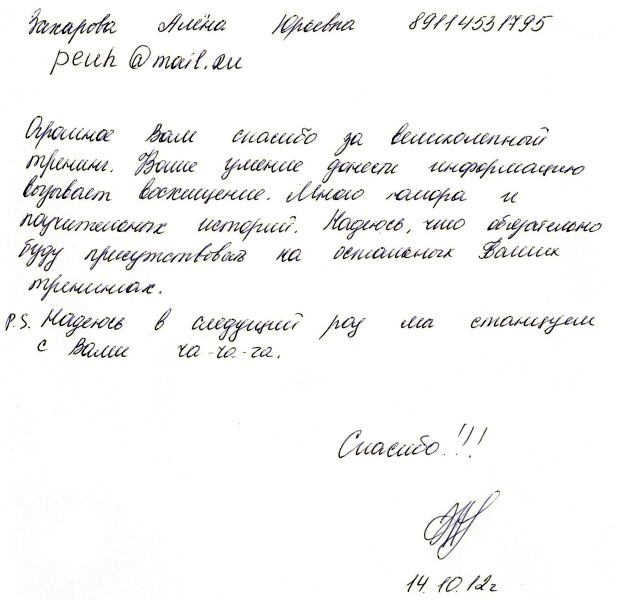 Захарова Алёна Юрьевна 89114531795
peuh@mail.ru
Огромное Вам спасибо за великолепный
тренинг. Ваше умение донести информацию
вызывает восхищение. Много юмора и
поучительных историй. Надеюсь, что обязательно
буду присутствовать на остальных Ваших
тренингах.
P.S. Надеюсь в следущий раз мы станцуем
с Вами ча-ча-ча.
Спасибо!!!
14.10.12г